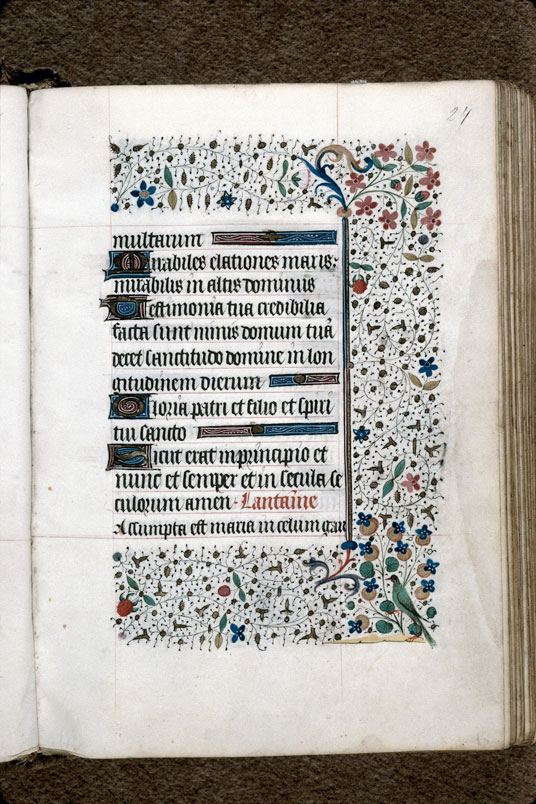 24
multarum
Mirabiles elationes maris:
mirabilis in altis dominus
Testimonia tua credibilia
facta sunt nimis domum tuā
decet sanctitudo domine in lon
gitudinem dierum
Gloria patri et filio et spiri
tui sancto
Sicut erat in principio et
nunc et semper et in secula se
culorum amen. Lantaīne
Assumpta est maria in celum gau